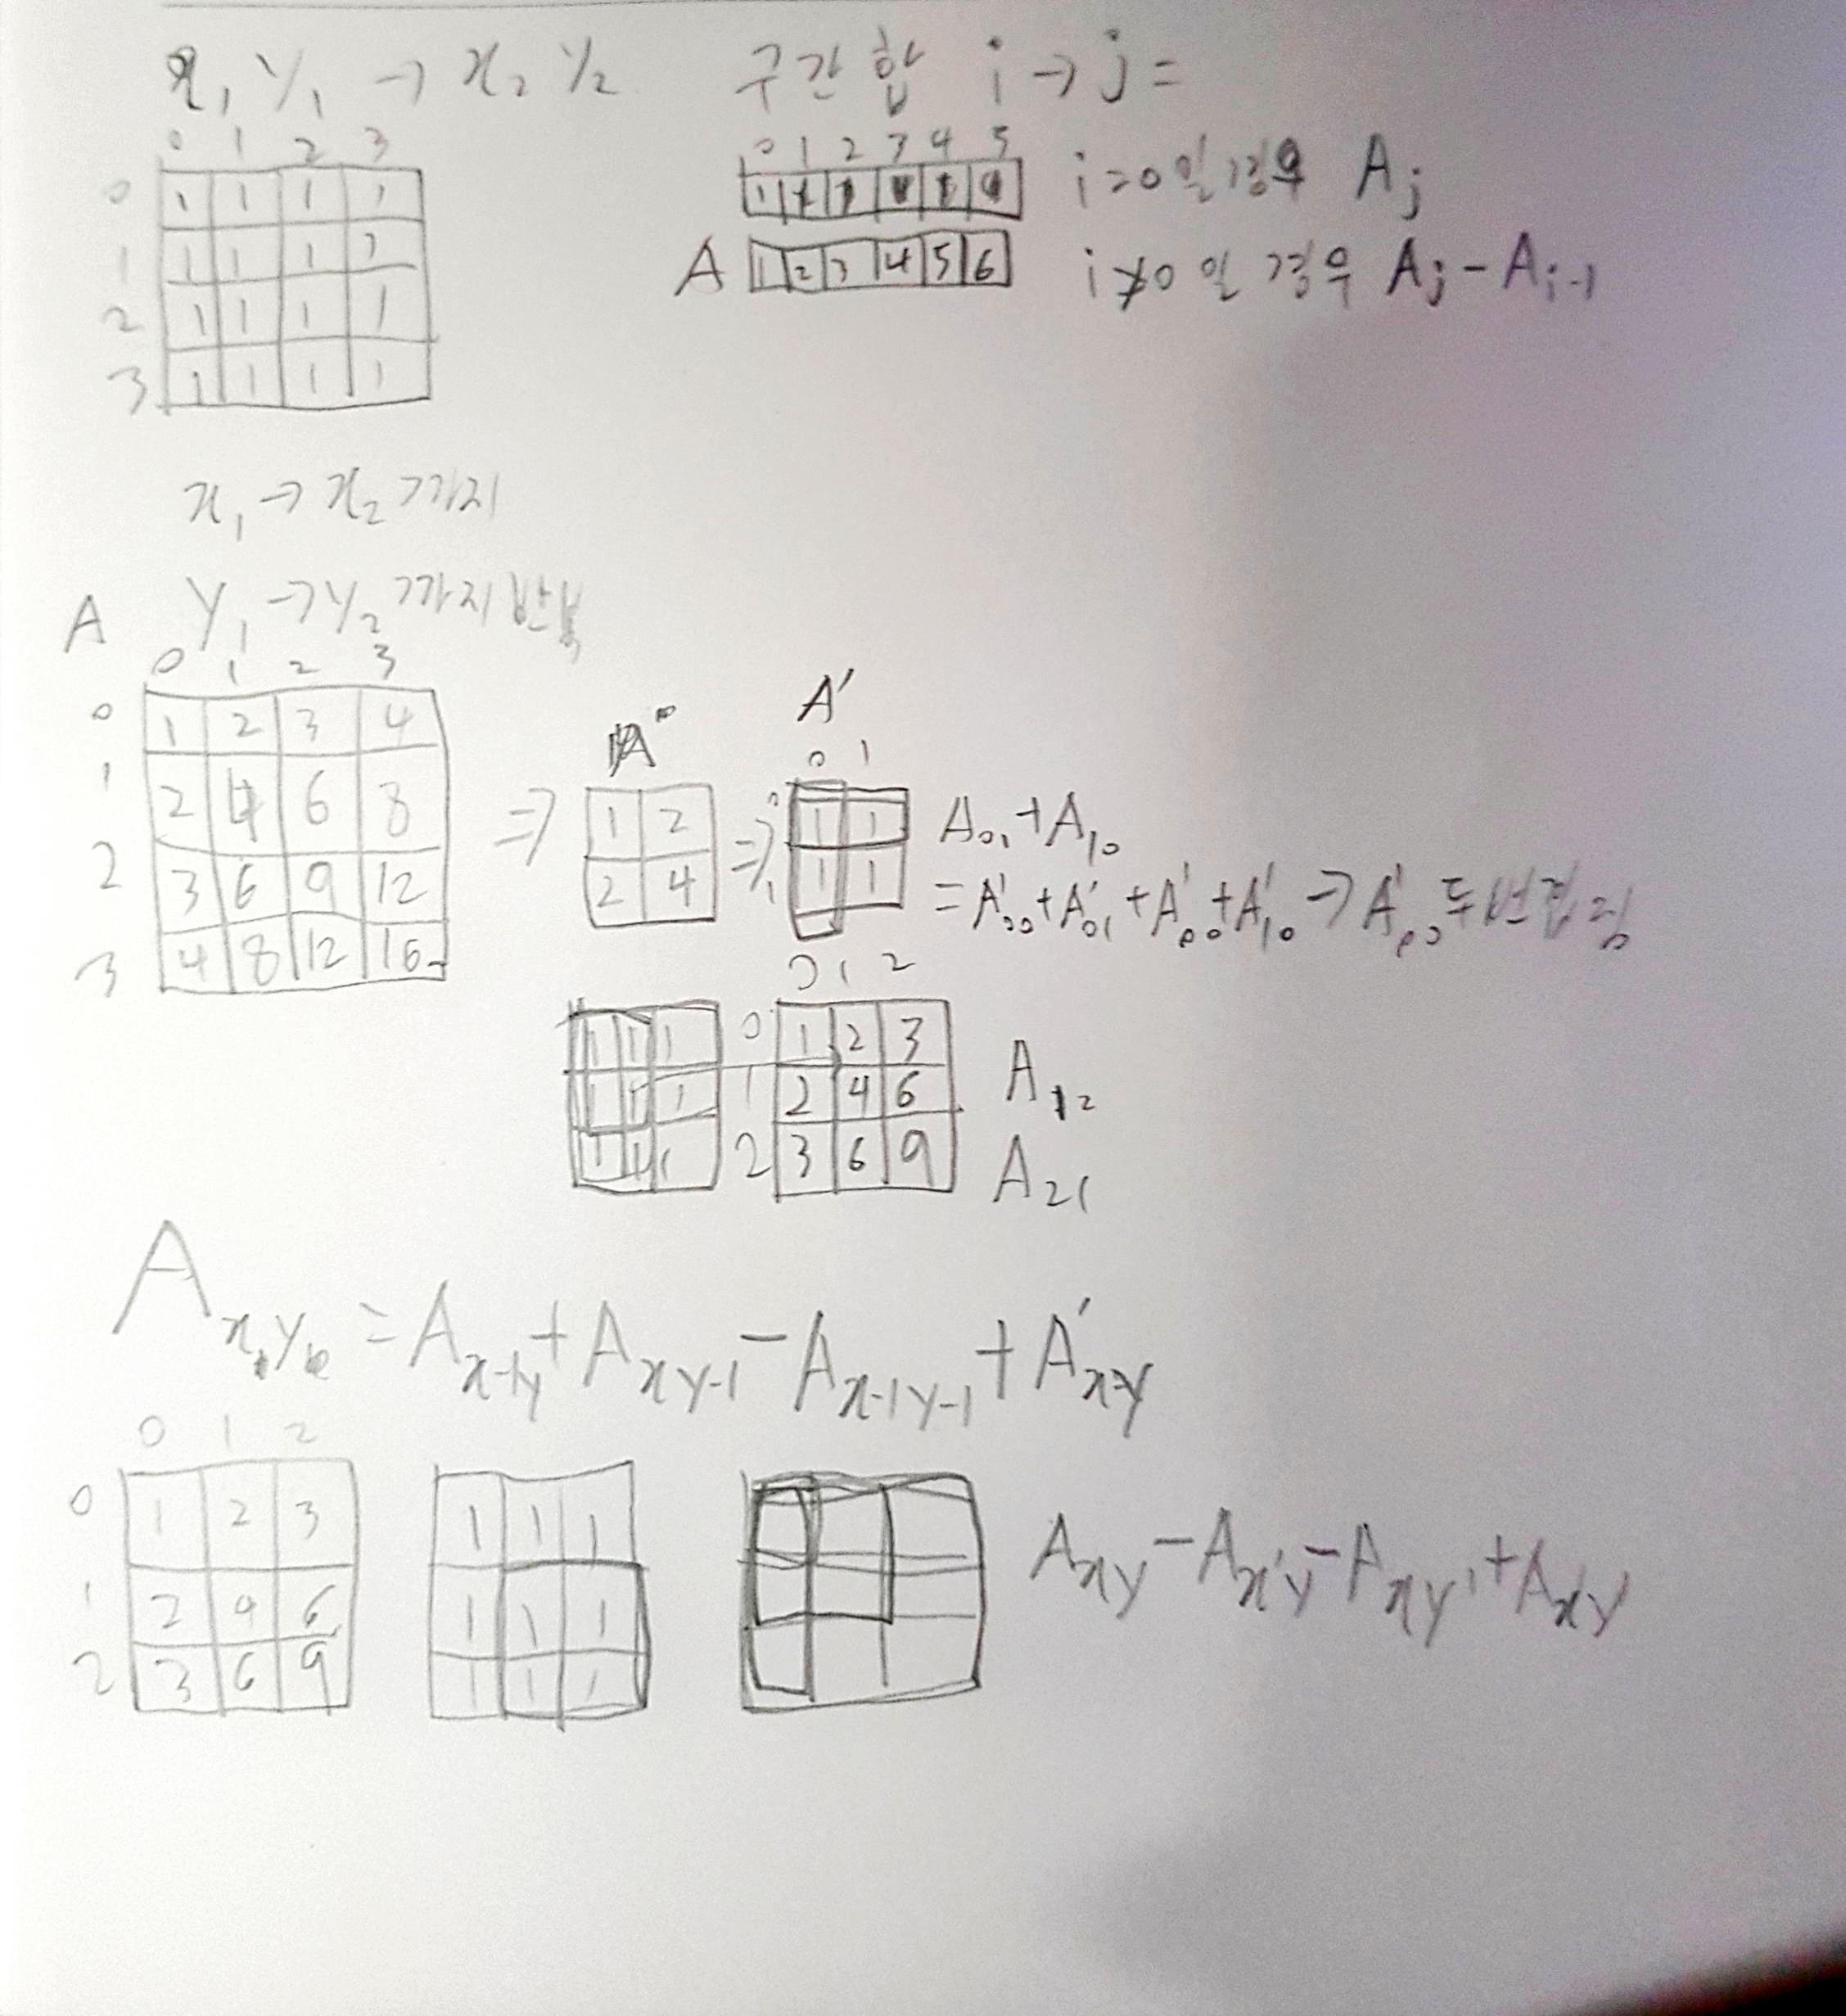 x₁ y₁ → x₂ y₂ 구간합 i → j =
0 1 2 3
0 1 1 1 1
1 1 1 1 1
2 1 1 1 1
3 1 1 1 1
0 1 2 3 4 5
1 1 1 1 1 1 i=0일 경우 Aj
A 1 2 3 4 5 6 i≠0일 경우 Aj - Ai-1
x₁ → x₂ 까지
A y₁ → y₂ 까지 반복
0 1 2 3
0 1 2 3 4
1 2 4 6 8
2 3 6 9 12
3 4 8 12 16
⇒
1 2
2 4
⇒
A'
0 1
0 1 1
1 1 1
A₀₁ + A₁₀
= A'₀₀ + A'₀₁ + A'₀₀ + A'₁₀ → A'₀₀ 두번겹침
1 1 1
1 1 1
1 1 1
0 1 2
0 1 2 3
1 2 4 6
2 3 6 9
A₁₂
A₂₁
Axy = Ax-1y + Axy-1 - Ax-1y-1 + A'xy
0 1 2
0 1 2 3
1 2 4 6
2 3 6 9
1 1 1
1 1 1
1 1 1
Axy - Ax'y - Axy' + Ax'y'